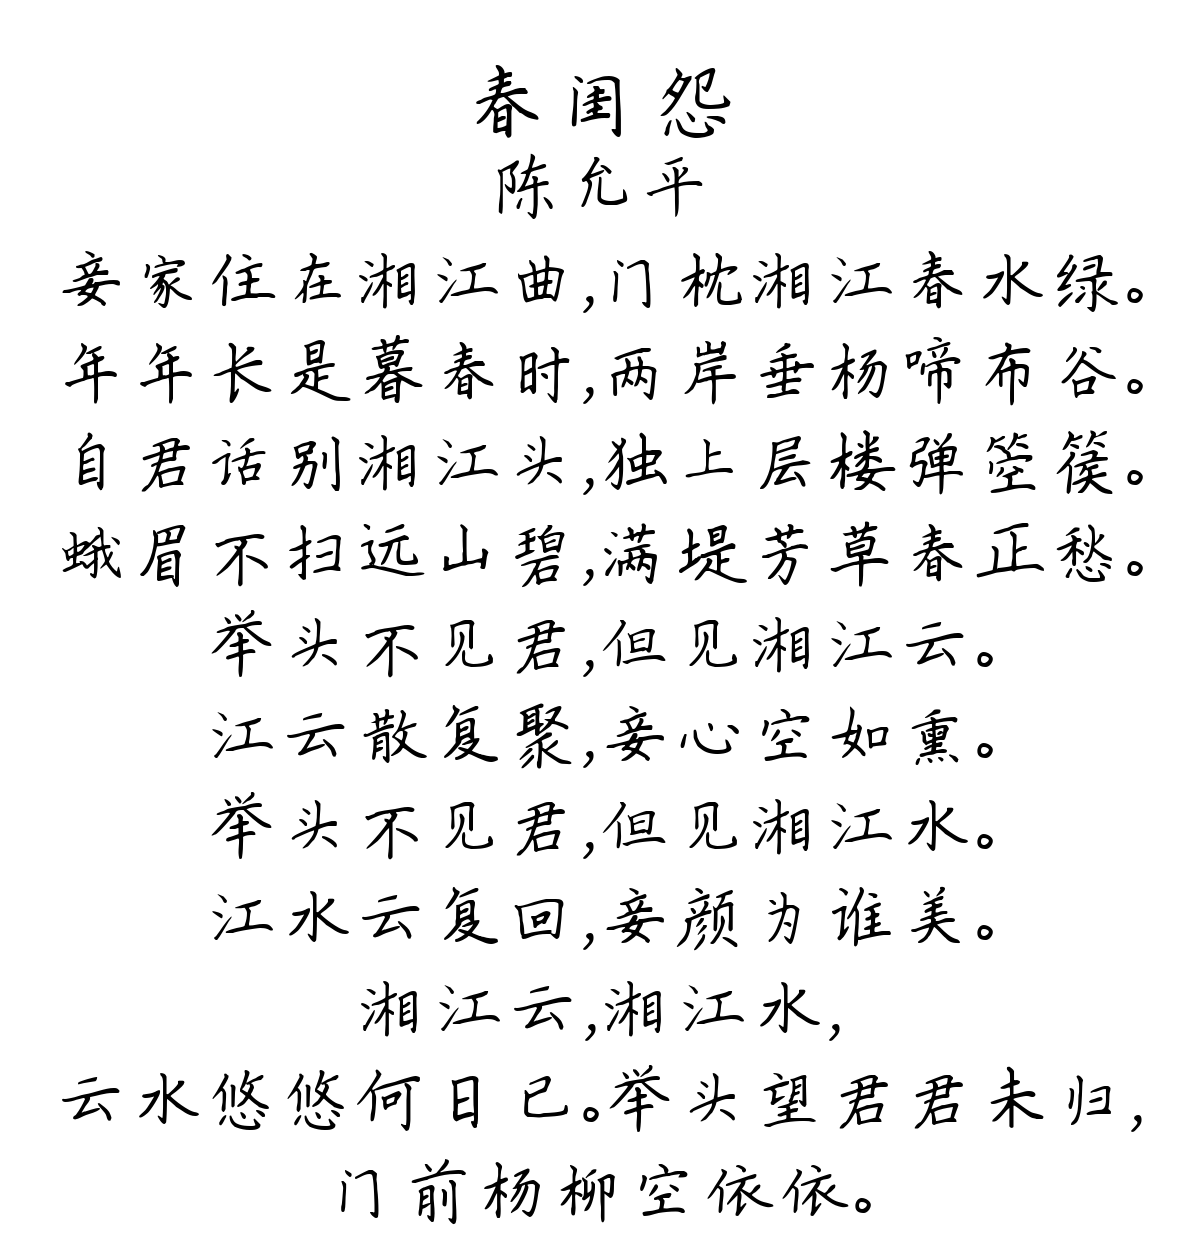 春闺怨
陈允平
妾家住在湘江曲,门枕湘江春水绿。
年年长是暮春时,两岸垂杨啼布谷。
自君话别湘江头,独上层楼弹箜篌。
蛾眉不扫远山碧,满堤芳草春正愁。
举头不见君,但见湘江云。
江云散复聚,妾心空如熏。
举头不见君,但见湘江水。
江水云复回,妾颜为谁美。
湘江云,湘江水,
云水悠悠何日已。举头望君君未归,
门前杨柳空依依。